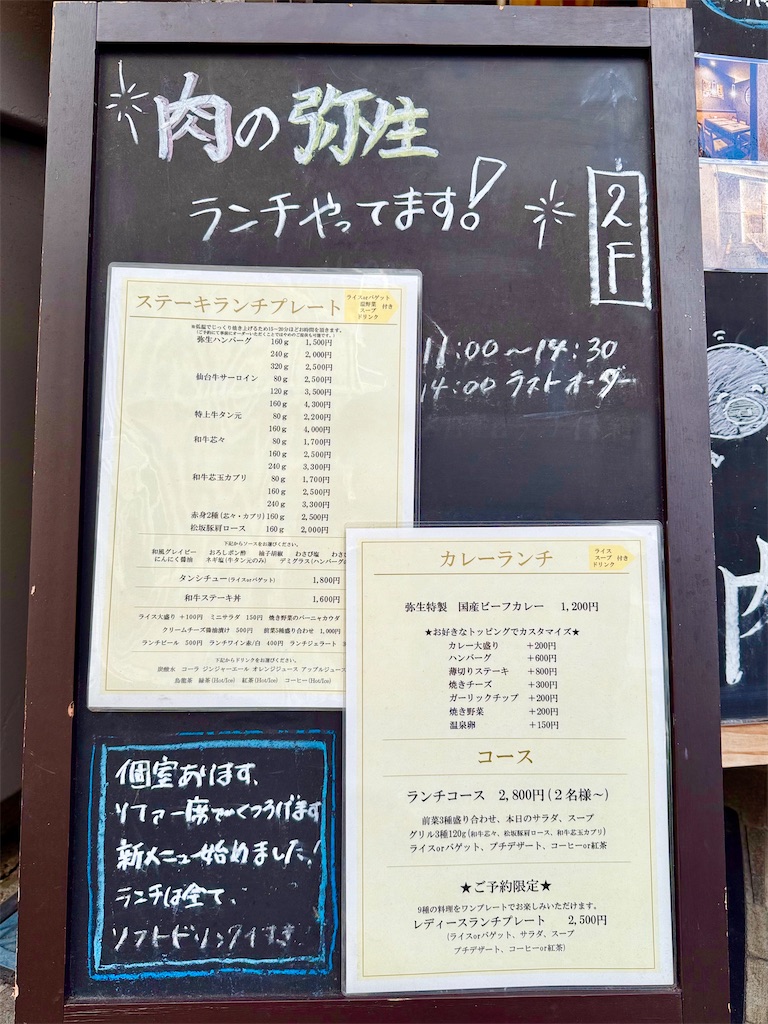 肉の弥生
ランチやってます!
2F
11:00〜14:30
14:00 ラストオーダー
ステーキランチプレート
ライスorバゲット
温野菜
スープ
ドリンク
付き
弥生ハンバーグ 160g 1,500円
240g 2,000円
320g 2,500円
仙台牛サーロイン 80g 2,500円
120g 3,500円
160g 4,300円
特上牛タン元 80g 2,200円
160g 4,000円
和牛芯々 80g 1,700円
160g 2,500円
240g 3,300円
和牛芯玉カブリ 80g 1,700円
160g 2,500円
240g 3,300円
赤身2種(芯々・カブリ) 160g 2,500円
松坂豚肩ロース 160g 2,000円
下記からソースをお選びください。
和風グレイビー おろしポン酢 柚子胡椒 わさび塩 わさび
にんにく醤油 ネギ塩(牛タン元のみ) デミグラス(ハンバーグ
タンシチュー(ライスorバゲット) 1,800円
和牛ステーキ丼 1,600円
ライス大盛り +100円 ミニサラダ 150円 焼き野菜のバーニャカウダ
クリームチーズ醤油漬け 500円 前菜5種盛り合わせ 1,000円
ランチビール 500円 ランチワイン赤/白 400円 ランチジェラート
下記からドリンクをお選びください。
炭酸水 コーラ ジンジャーエール オレンジジュース アップルジュース
烏龍茶 緑茶(Hot/Ice) 紅茶(Hot/Ice) コーヒー(Hot/Ice)
カレーランチ
ライス
スープ
ドリンク
付き
弥生特製 国産ビーフカレー 1,200円
★お好きなトッピングでカスタマイズ★
カレー大盛り +200円
ハンバーグ +600円
薄切りステーキ +800円
焼きチーズ +300円
ガーリックチップ +200円
焼き野菜 +200円
温泉卵 +150円
コース
ランチコース 2,800円(2名様〜)
前菜3種盛り合わせ、本日のサラダ、スープ
グリル3種120g(和牛芯々、松坂豚肩ロース、和牛芯玉カブリ)
ライスorバゲット、プチデザート、コーヒーor紅茶
★ご予約限定★
9種の料理をワンプレートでお楽しみいただけます。
レディースランチプレート 2,500円
(ライスorバゲット、サラダ、スープ
プチデザート、コーヒーor紅茶)
個室あります、
ソファー席でくつろげます
新メニュー始めました!
ランチは全て、
ソフトドリンク付き
肉